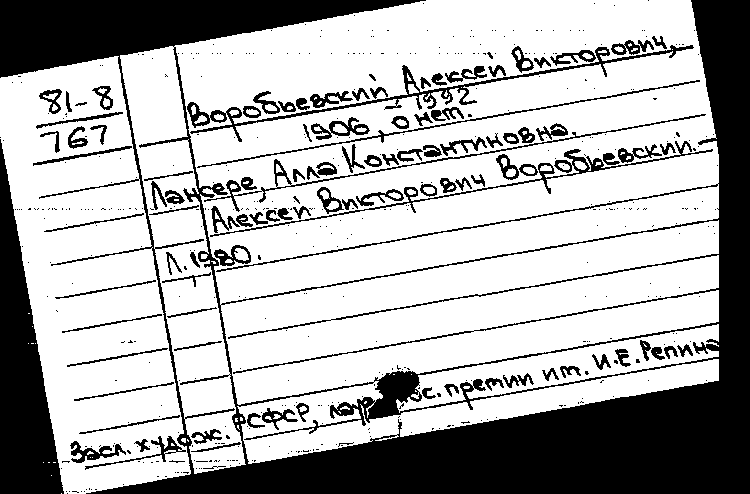 81-8
767
Воробьевский, Алексей Викторович,
1906 - 1992, о нем.
Лансере, Алла Константиновна.
Алексей Викторович Воробьевский. —
Л., 1980.
Засл. худож. РСФСР, лаур. Гос. премии им. И.Е. Репина